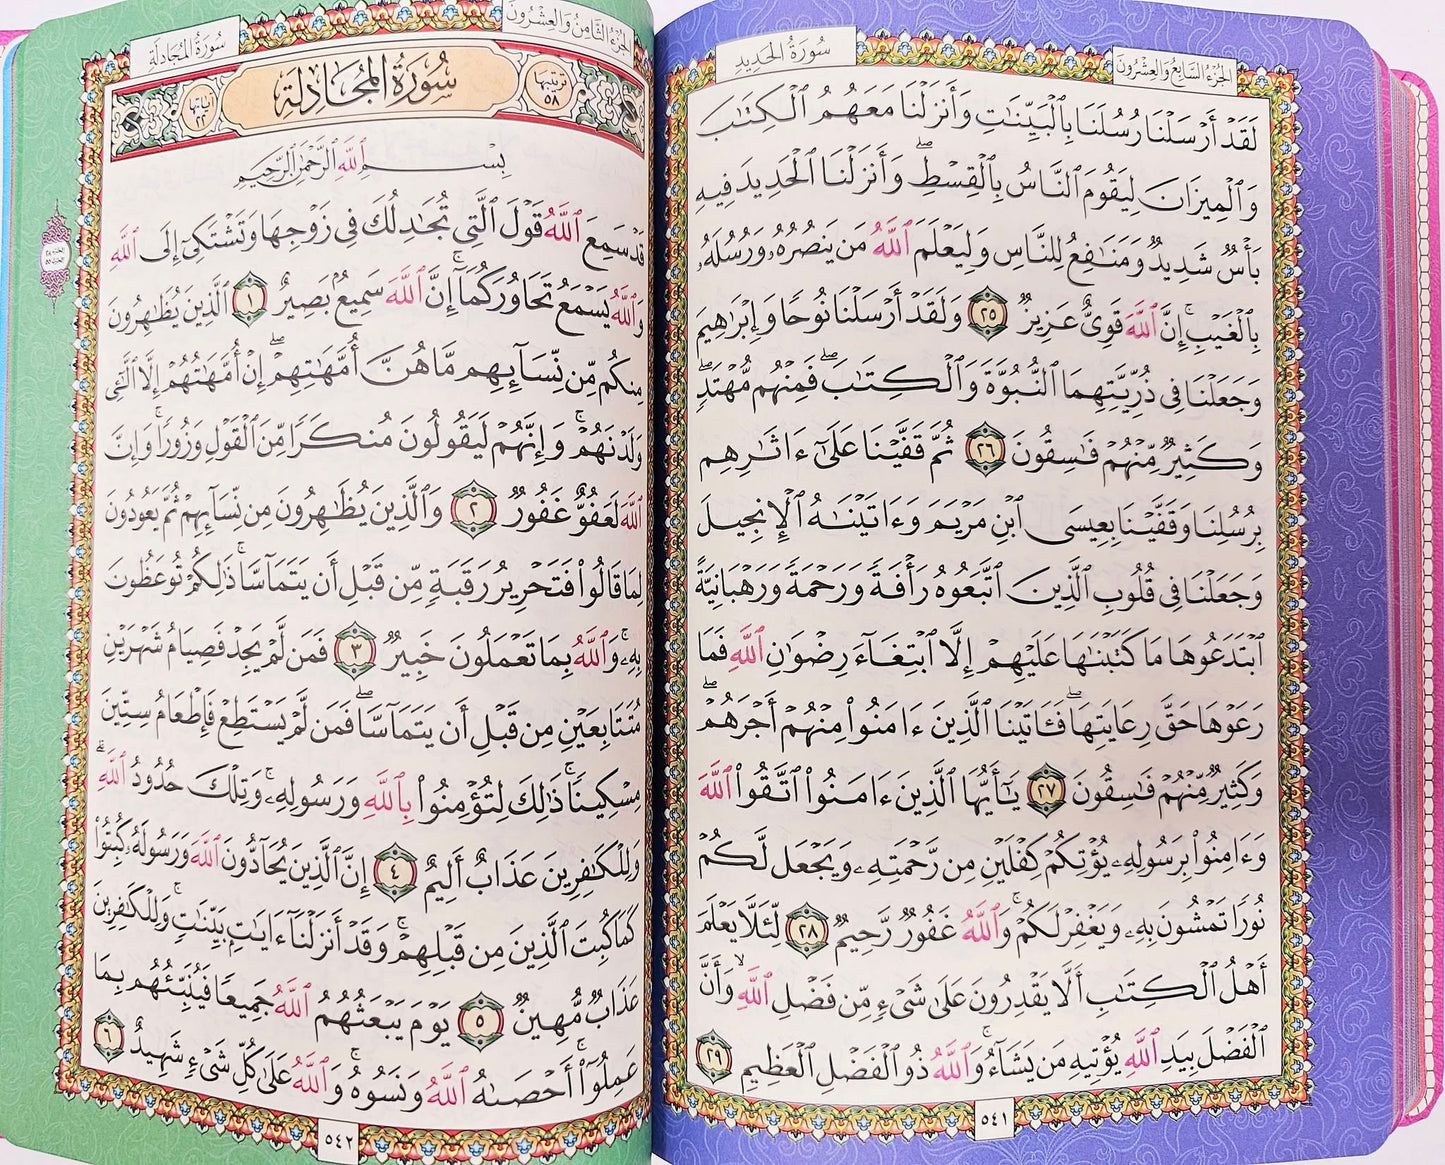 الجزء السابع والعشرون
سورة الحديد
لَقَدْ أَرْسَلْنَا رُسُلَنَا بِالْبَيِّنَاتِ وَأَنزَلْنَا مَعَهُمُ الْكِتَابَ
وَالْمِيزَانَ لِيَقُومَ النَّاسُ بِالْقِسْطِ ۖ وَأَنزَلْنَا الْحَدِيدَ فِيهِ
بَأْسٌ شَدِيدٌ وَمَنَافِعُ لِلنَّاسِ وَلِيَعْلَمَ اللَّهُ مَن يَنصُرُهُ وَرُسُلَهُ
بِالْغَيْبِ ۚ إِنَّ اللَّهَ قَوِيٌّ عَزِيزٌ ٢٥ وَلَقَدْ أَرْسَلْنَا نُوحًا وَإِبْرَاهِيمَ
وَجَعَلْنَا فِي ذُرِّيَّتِهِمَا النُّبُوَّةَ وَالْكِتَابَ ۖ فَمِنْهُم مُّهْتَدٍ ۖ
وَكَثِيرٌ مِّنْهُمْ فَاسِقُونَ ٢٦ ثُمَّ قَفَّيْنَا عَلَىٰ ءَاثَارِهِم
بِرُسُلِنَا وَقَفَّيْنَا بِعِيسَى ابْنِ مَرْيَمَ وَءَاتَيْنَاهُ الْإِنجِيلَ
وَجَعَلْنَا فِي قُلُوبِ الَّذِينَ اتَّبَعُوهُ رَأْفَةً وَرَحْمَةً وَرَهْبَانِيَّةً
ابْتَدَعُوهَا مَا كَتَبْنَاهَا عَلَيْهِمْ إِلَّا ابْتِغَاءَ رِضْوَانِ اللَّهِ فَمَا
رَعَوْهَا حَقَّ رِعَايَتِهَا ۖ فَـَٔاتَيْنَا الَّذِينَ ءَامَنُوا مِنْهُمْ أَجْرَهُمْ ۖ
وَكَثِيرٌ مِّنْهُمْ فَاسِقُونَ ٢٧ يَا أَيُّهَا الَّذِينَ ءَامَنُوا اتَّقُوا اللَّهَ
وَءَامِنُوا بِرَسُولِهِ يُؤْتِكُمْ كِفْلَيْنِ مِن رَّحْمَتِهِ وَيَجْعَل لَّكُمْ
نُورًا تَمْشُونَ بِهِ وَيَغْفِرْ لَكُمْ ۚ وَاللَّهُ غَفُورٌ رَّحِيمٌ ٢٨ لِّئَلَّا يَعْلَمَ
أَهْلُ الْكِتَابِ أَلَّا يَقْدِرُونَ عَلَىٰ شَيْءٍ مِّن فَضْلِ اللَّهِ ۙ وَأَنَّ
الْفَضْلَ بِيَدِ اللَّهِ يُؤْتِيهِ مَن يَشَاءُ ۚ وَاللَّهُ ذُو الْفَضْلِ الْعَظِيمِ ٢٩
٥٤١
الجزء الثامن والعشرون
سورة المجادلة
ترتيبها ٥٨
سورة المجادلة
آياتها ٢٢
بِسْمِ اللَّهِ الرَّحْمَٰنِ الرَّحِيمِ
قَدْ سَمِعَ اللَّهُ قَوْلَ الَّتِي تُجَادِلُكَ فِي زَوْجِهَا وَتَشْتَكِي إِلَى اللَّهِ
وَاللَّهُ يَسْمَعُ تَحَاوُرَكُمَا ۚ إِنَّ اللَّهَ سَمِيعٌ بَصِيرٌ ١ الَّذِينَ يُظَاهِرُونَ
مِنكُم مِّن نِّسَائِهِم مَّا هُنَّ أُمَّهَاتِهِمْ ۖ إِنْ أُمَّهَاتُهُمْ إِلَّا اللَّائِي
وَلَدْنَهُمْ ۚ وَإِنَّهُمْ لَيَقُولُونَ مُنكَرًا مِّنَ الْقَوْلِ وَزُورًا ۚ وَإِنَّ
اللَّهَ لَعَفُوٌّ غَفُورٌ ٢ وَالَّذِينَ يُظَاهِرُونَ مِن نِّسَائِهِمْ ثُمَّ يَعُودُونَ
لِمَا قَالُوا فَتَحْرِيرُ رَقَبَةٍ مِّن قَبْلِ أَن يَتَمَاسَّا ۚ ذَٰلِكُمْ تُوعَظُونَ
بِهِ ۚ وَاللَّهُ بِمَا تَعْمَلُونَ خَبِيرٌ ٣ فَمَن لَّمْ يَجِدْ فَصِيَامُ شَهْرَيْنِ
مُتَتَابِعَيْنِ مِن قَبْلِ أَن يَتَمَاسَّا ۖ فَمَن لَّمْ يَسْتَطِعْ فَإِطْعَامُ سِتِّينَ
مِسْكِينًا ۚ ذَٰلِكَ لِتُؤْمِنُوا بِاللَّهِ وَرَسُولِهِ ۚ وَتِلْكَ حُدُودُ اللَّهِ ۗ
وَلِلْكَافِرِينَ عَذَابٌ أَلِيمٌ ٤ إِنَّ الَّذِينَ يُحَادُّونَ اللَّهَ وَرَسُولَهُ كُبِتُوا
كَمَا كُبِتَ الَّذِينَ مِن قَبْلِهِمْ ۚ وَقَدْ أَنزَلْنَا ءَايَاتٍ بَيِّنَاتٍ ۚ وَلِلْكَافِرِينَ
عَذَابٌ مُّهِينٌ ٥ يَوْمَ يَبْعَثُهُمُ اللَّهُ جَمِيعًا فَيُنَبِّئُهُم بِمَا
عَمِلُوا ۚ أَحْصَاهُ اللَّهُ وَنَسُوهُ ۚ وَاللَّهُ عَلَىٰ كُلِّ شَيْءٍ شَهِيدٌ ٦
٥٤٢